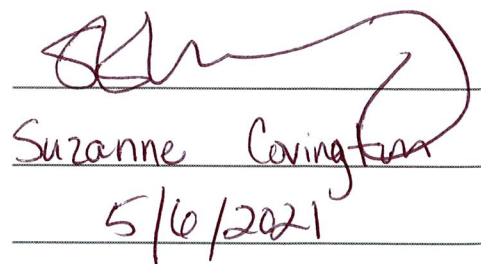 Suzanne Covington
5/6/2021